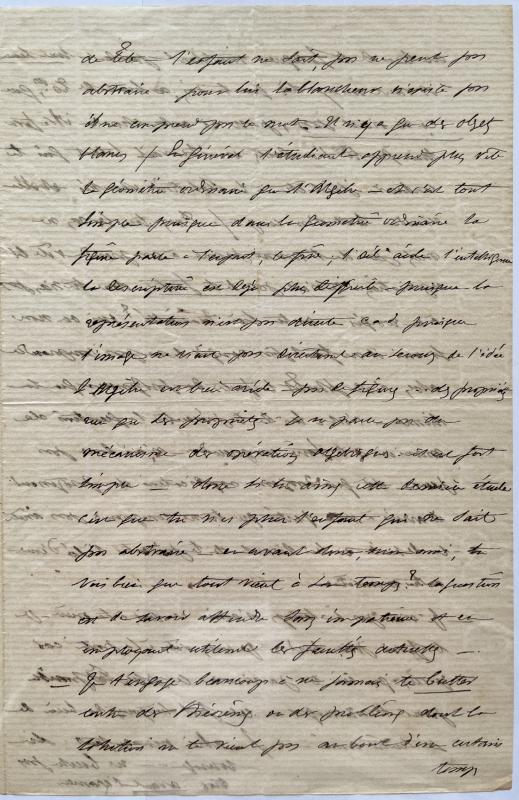 de tête – l'enfant ne sait, pas ne peut pas
abstraire – pour lui la blancheur n'existe pas
il ne comprend pas le mot – Il n'y a que des objets
blancs / En général l'étudiant apprend plus vite
la géométrie ordinaire que l'Algèbre – et c'est tout
simple puisque dans la géométrie ordinaire la
figure parle à l'esprit, l'œil aide l'intelligence
la descriptive est déjà plus difficile puisque la
représentation n'est pas directe c.a.d. puisque
l'image ne vient pas directement au secours de l'idée
l'Algèbre est bien aride pas de figures – des propriétés
rien que des propriétés – Je ne parle pas du
mécanisme des opérations algébriques – il est fort
simple – donc si tu aimes cette dernière étude
c'est que tu n'es plus l'enfant qui ne sait
pas abstraire – en avant donc, mon ami, tu
vois bien que tout vient à son temps, la question
est de savoir attendre sans impatience et en
employant utilement les facultés actuelles –
– Je t'engage beaucoup à ne jamais te butter
contre des théorèmes ou des problèmes dont la
solution ne te vient pas au bout d'un certain
temps